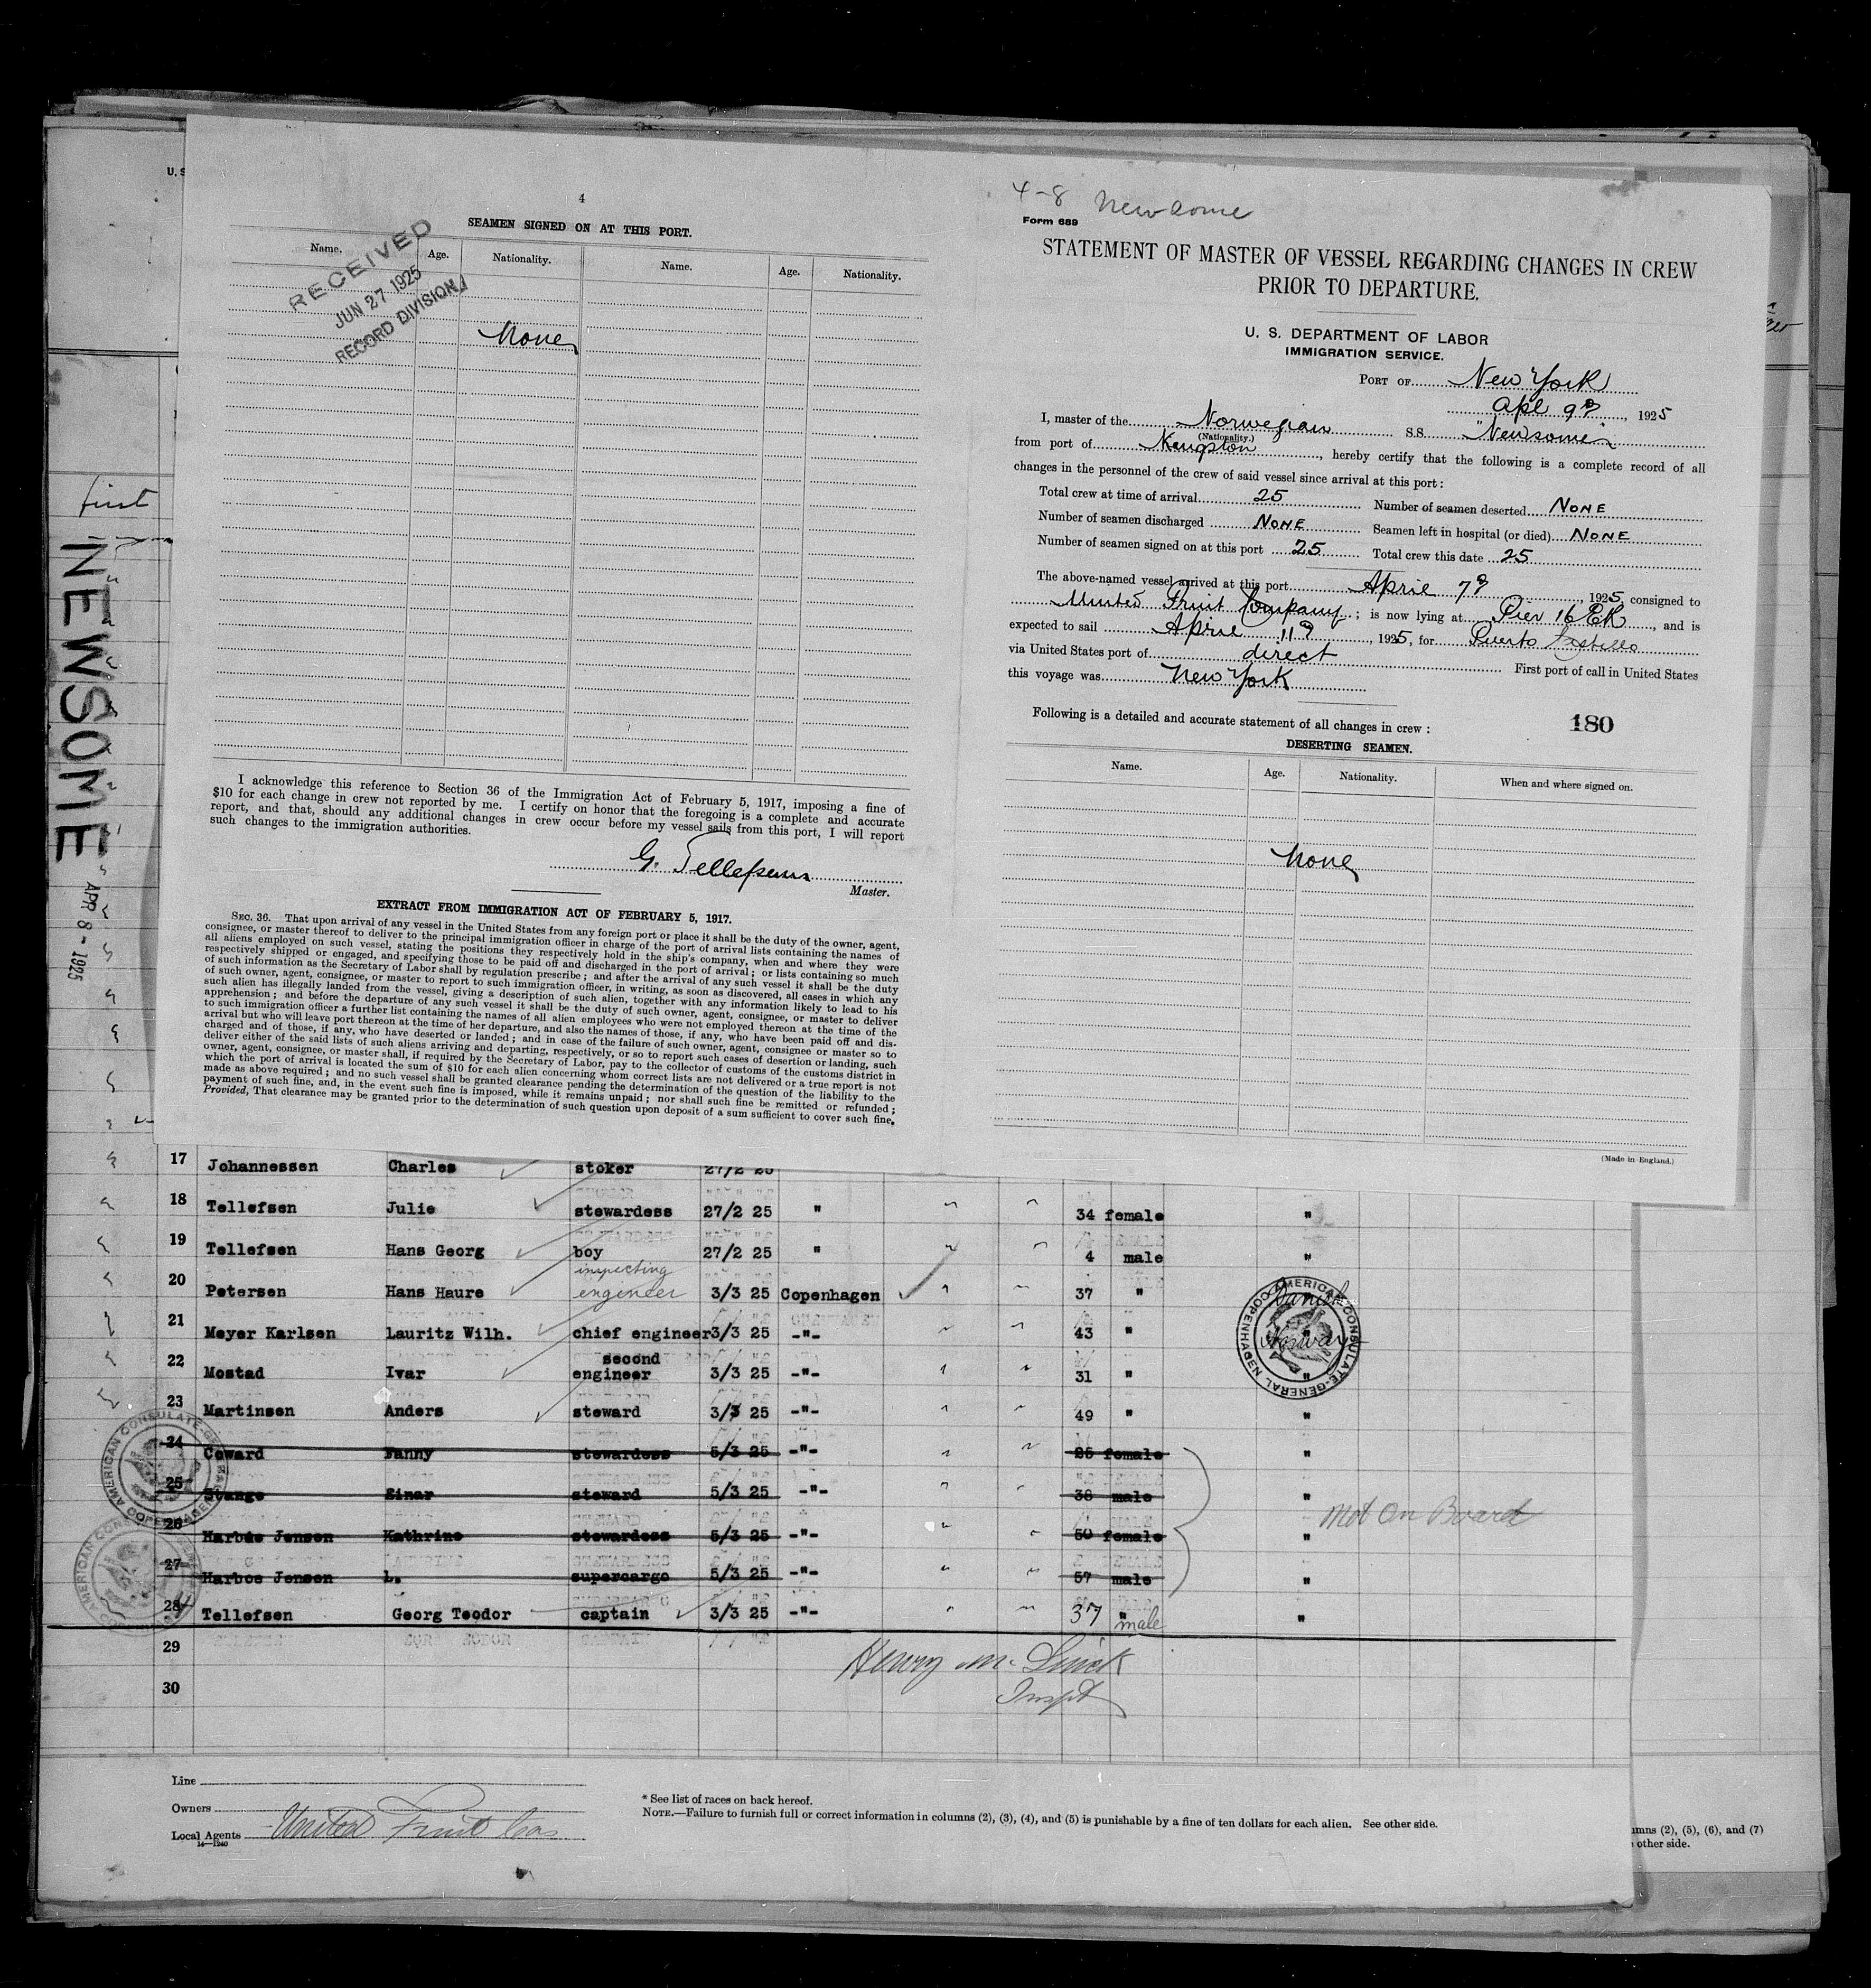 U. S
4
SEAMEN SIGNED ON AT THIS PORT.
Name. Age. Nationality. Name. Age. Nationality.
RECEIVED
JUN 27 1925
RECORD DIVISION
None
I acknowledge this reference to Section 36 of the Immigration Act of February 5, 1917, imposing a fine of
$10 for each change in crew not reported by me. I certify on honor that the foregoing is a complete and accurate
report, and that, should any additional changes in crew occur before my vessel sails from this port, I will report
such changes to the immigration authorities.
G. Tellefsen
Master.
EXTRACT FROM IMMIGRATION ACT OF FEBRUARY 5, 1917.
SEC. 36. That upon arrival of any vessel in the United States from any foreign port or place it shall be the duty of the owner, agent,
consignee, or master thereof to deliver to the principal immigration officer in charge of the port of arrival lists containing the names of
all aliens employed on such vessel, stating the positions they respectively hold in the ship's company, when and where they were
respectively shipped or engaged, and specifying those to be paid off and discharged in the port of arrival; or lists containing so much
of such information as the Secretary of Labor shall by regulation prescribe; and after the arrival of any such vessel it shall be the duty
of such owner, agent, consignee, or master to report to such immigration officer, in writing, as soon as discovered, all cases in which any
such alien has illegally landed from the vessel, giving a description of such alien, together with any information likely to lead to his
apprehension; and before the departure of any such vessel it shall be the duty of such owner, agent, consignee, or master to deliver
to such immigration officer a further list containing the names of all alien employees who were not employed thereon at the time of the
arrival but who will leave port thereon at the time of her departure, and also the names of those, if any, who have been paid off and dis-
charged and of those, if any, who have deserted or landed; and in case of the failure of such owner, agent, consignee or master so to
deliver either of the said lists of such aliens arriving and departing, respectively, or so to report such cases of desertion or landing, such
owner, agent, consignee, or master shall, if required by the Secretary of Labor, pay to the collector of customs of the customs district in
which the port of arrival is located the sum of $10 for each alien concerning whom correct lists are not delivered or a true report is not
made as above required; and no such vessel shall be granted clearance pending the determination of the question of the liability to the
payment of such fine, and, in the event such fine is imposed, while it remains unpaid; nor shall such fine be remitted or refunded;
Provided, That clearance may be granted prior to the determination of such question upon deposit of a sum sufficient to cover such fine.
4-8 Newsome
Form 689
STATEMENT OF MASTER OF VESSEL REGARDING CHANGES IN CREW
PRIOR TO DEPARTURE.
U. S. DEPARTMENT OF LABOR
IMMIGRATION SERVICE.
PORT OF New York
Apl 9th, 1925
I, master of the Norwegian S.S. "Newsome"
(Nationality.)
from port of Kingston, hereby certify that the following is a complete record of all
changes in the personnel of the crew of said vessel since arrival at this port:
Total crew at time of arrival 25 Number of seamen deserted NONE
Number of seamen discharged NONE Seamen left in hospital (or died) NONE
Number of seamen signed on at this port 25 Total crew this date 25
The above-named vessel arrived at this port April 7th, 1925, consigned to
United Fruit Company; is now lying at Pier 16 ER, and is
expected to sail April 11th, 1925, for Puerto Castilla
via United States port of direct First port of call in United States
this voyage was New York
Following is a detailed and accurate statement of all changes in crew:
180
DESERTING SEAMEN.
Name. Age. Nationality. When and where signed on.
None
(Made in England.)
first
NEWSOME
APR 8 - 1925
17 Johannessen Charles stoker 27/2 25
18 Tellefsen Julie stewardess 27/2 25 " 34 female "
19 Tellefsen Hans Georg boy 27/2 25 " 4 male "
20 Petersen Hans Haure inspecting engineer 3/3 25 Copenhagen 37 " Danish
21 Meyer Karlsen Lauritz Wilh. chief engineer 3/3 25 -"- 43 " Norway
22 Mostad Ivar second engineer 3/3 25 -"- 31 " "
23 Martinsen Anders steward 3/3 25 -"- 49 " "
24 Coward Fanny stewardess 5/3 25 -"- 25 female "
25 Stange Einar steward 5/3 25 -"- 38 male "
26 Harboe Jensen Kathrine stewardess 5/3 25 -"- 50 female "
27 Harboe Jensen L. supercargo 5/3 25 -"- 57 male "
Not On Board
28 Tellefsen Georg Teodor captain 3/3 25 -"- 37 " male "
29
30
AMERICAN CONSULATE-GENERAL COPENHAGEN
AMERICAN CONSULATE-GE COPENHAGEN
AMERICAN CONS
Inspt
Line
Owners
Local Agents United Fruit Co
14-1240
* See list of races on back hereof.
NOTE.—Failure to furnish full or correct information in columns (2), (3), (4), and (5) is punishable by a fine of ten dollars for each alien. See other side.
umns (2), (5), (6), and (7)
other side.